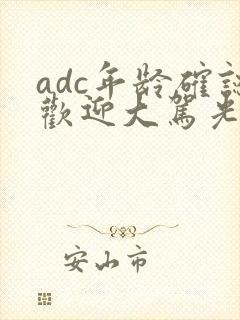 adc年龄確
歡迎大駕光
安山市